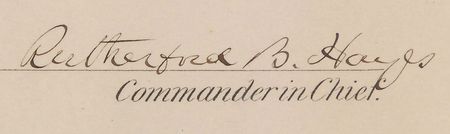 Rutherford B. Hayes
Commander in Chief.